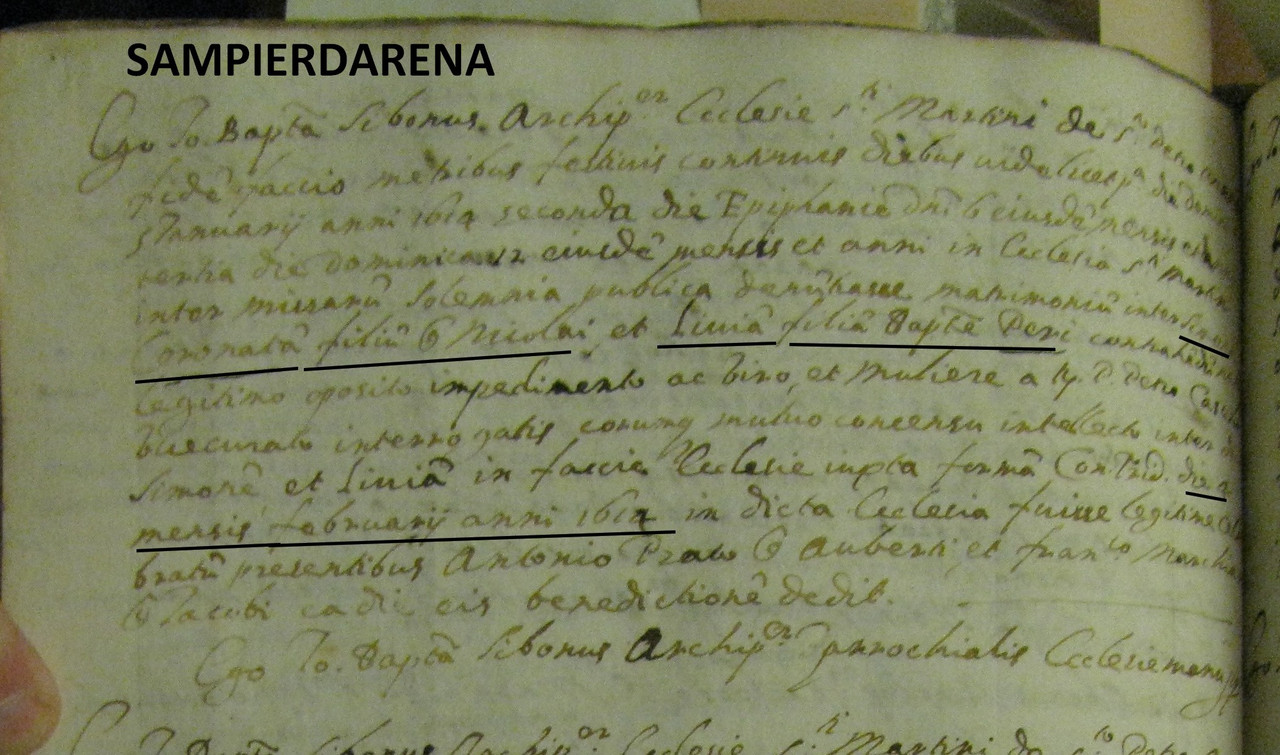 SAMPIERDARENA
Ego Jo. Bapta Sibonus Archip.er Ecclesie s.ti Martini de s.to Petro
fidē facio mensibus festivis continuis diebus videlicet p.a die
5 Januarij anni 1612 seconda die Epiphaniē dni 6 eiusdē mensis et
tertia die dominica 12 eiusdē mensis et anni in Ecclesia s.ti Martini
inter missarū solemnia publica denūtiasse matrimoniū inter
Coronatā filiū q Nicolai et Liviā filiā Baptē Peri
legitimo oposito impedimento ac viro et Muliere a P. Petro
vicecurato interrogatis eorumq mutuo concensu intellecto inter
Simonē et Liviā in faccie Ecclesie iupta formā Con. Trid. die 2
mensis februarij anni 1612 in dicta Ecclesia fuisse legitime
bratū presentibus Antonio Prato q Auberti et fran.co
q Jacobi ea die eis benedictionē dedit.
Ego Jo. Bapta Sibonus Archip.er parrochialis Ecclesie
Bapta Sibonus Archip.er Ecclesie s.ti Martini de s.to